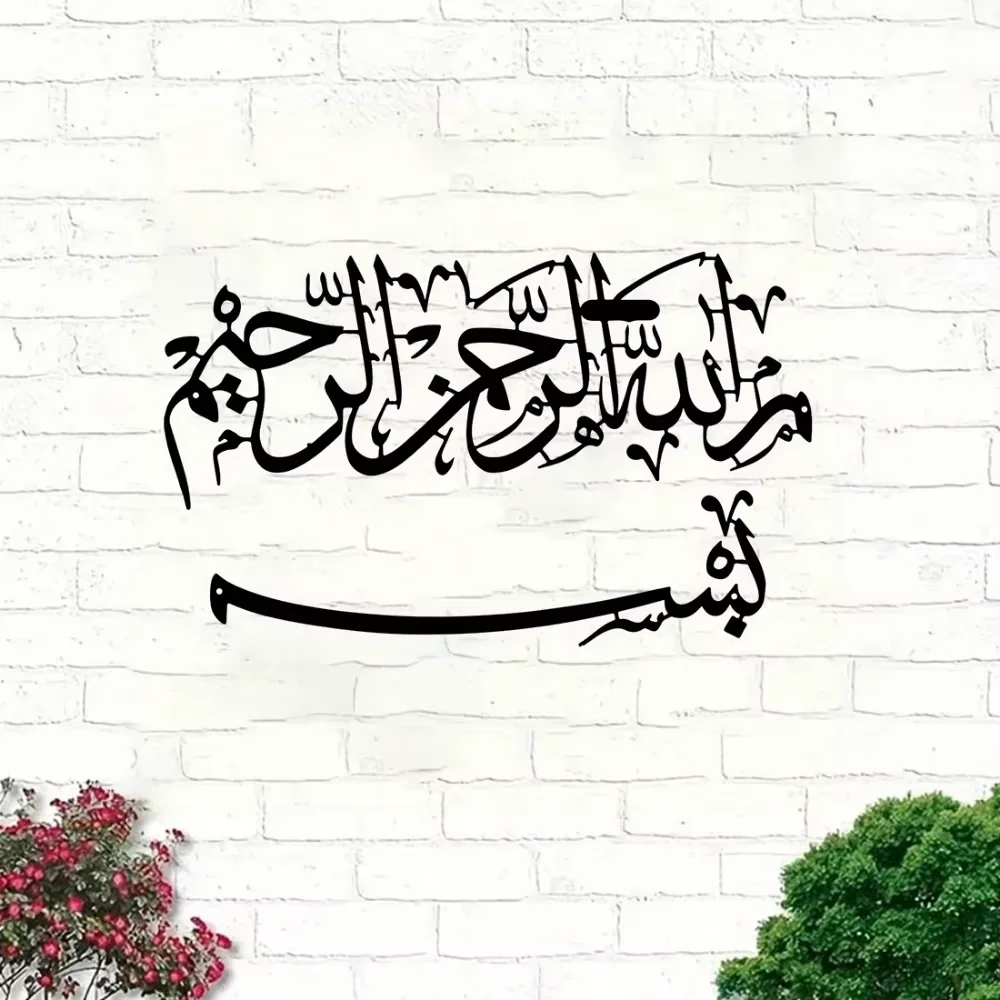 بسم
الله الرحمن الرحيم